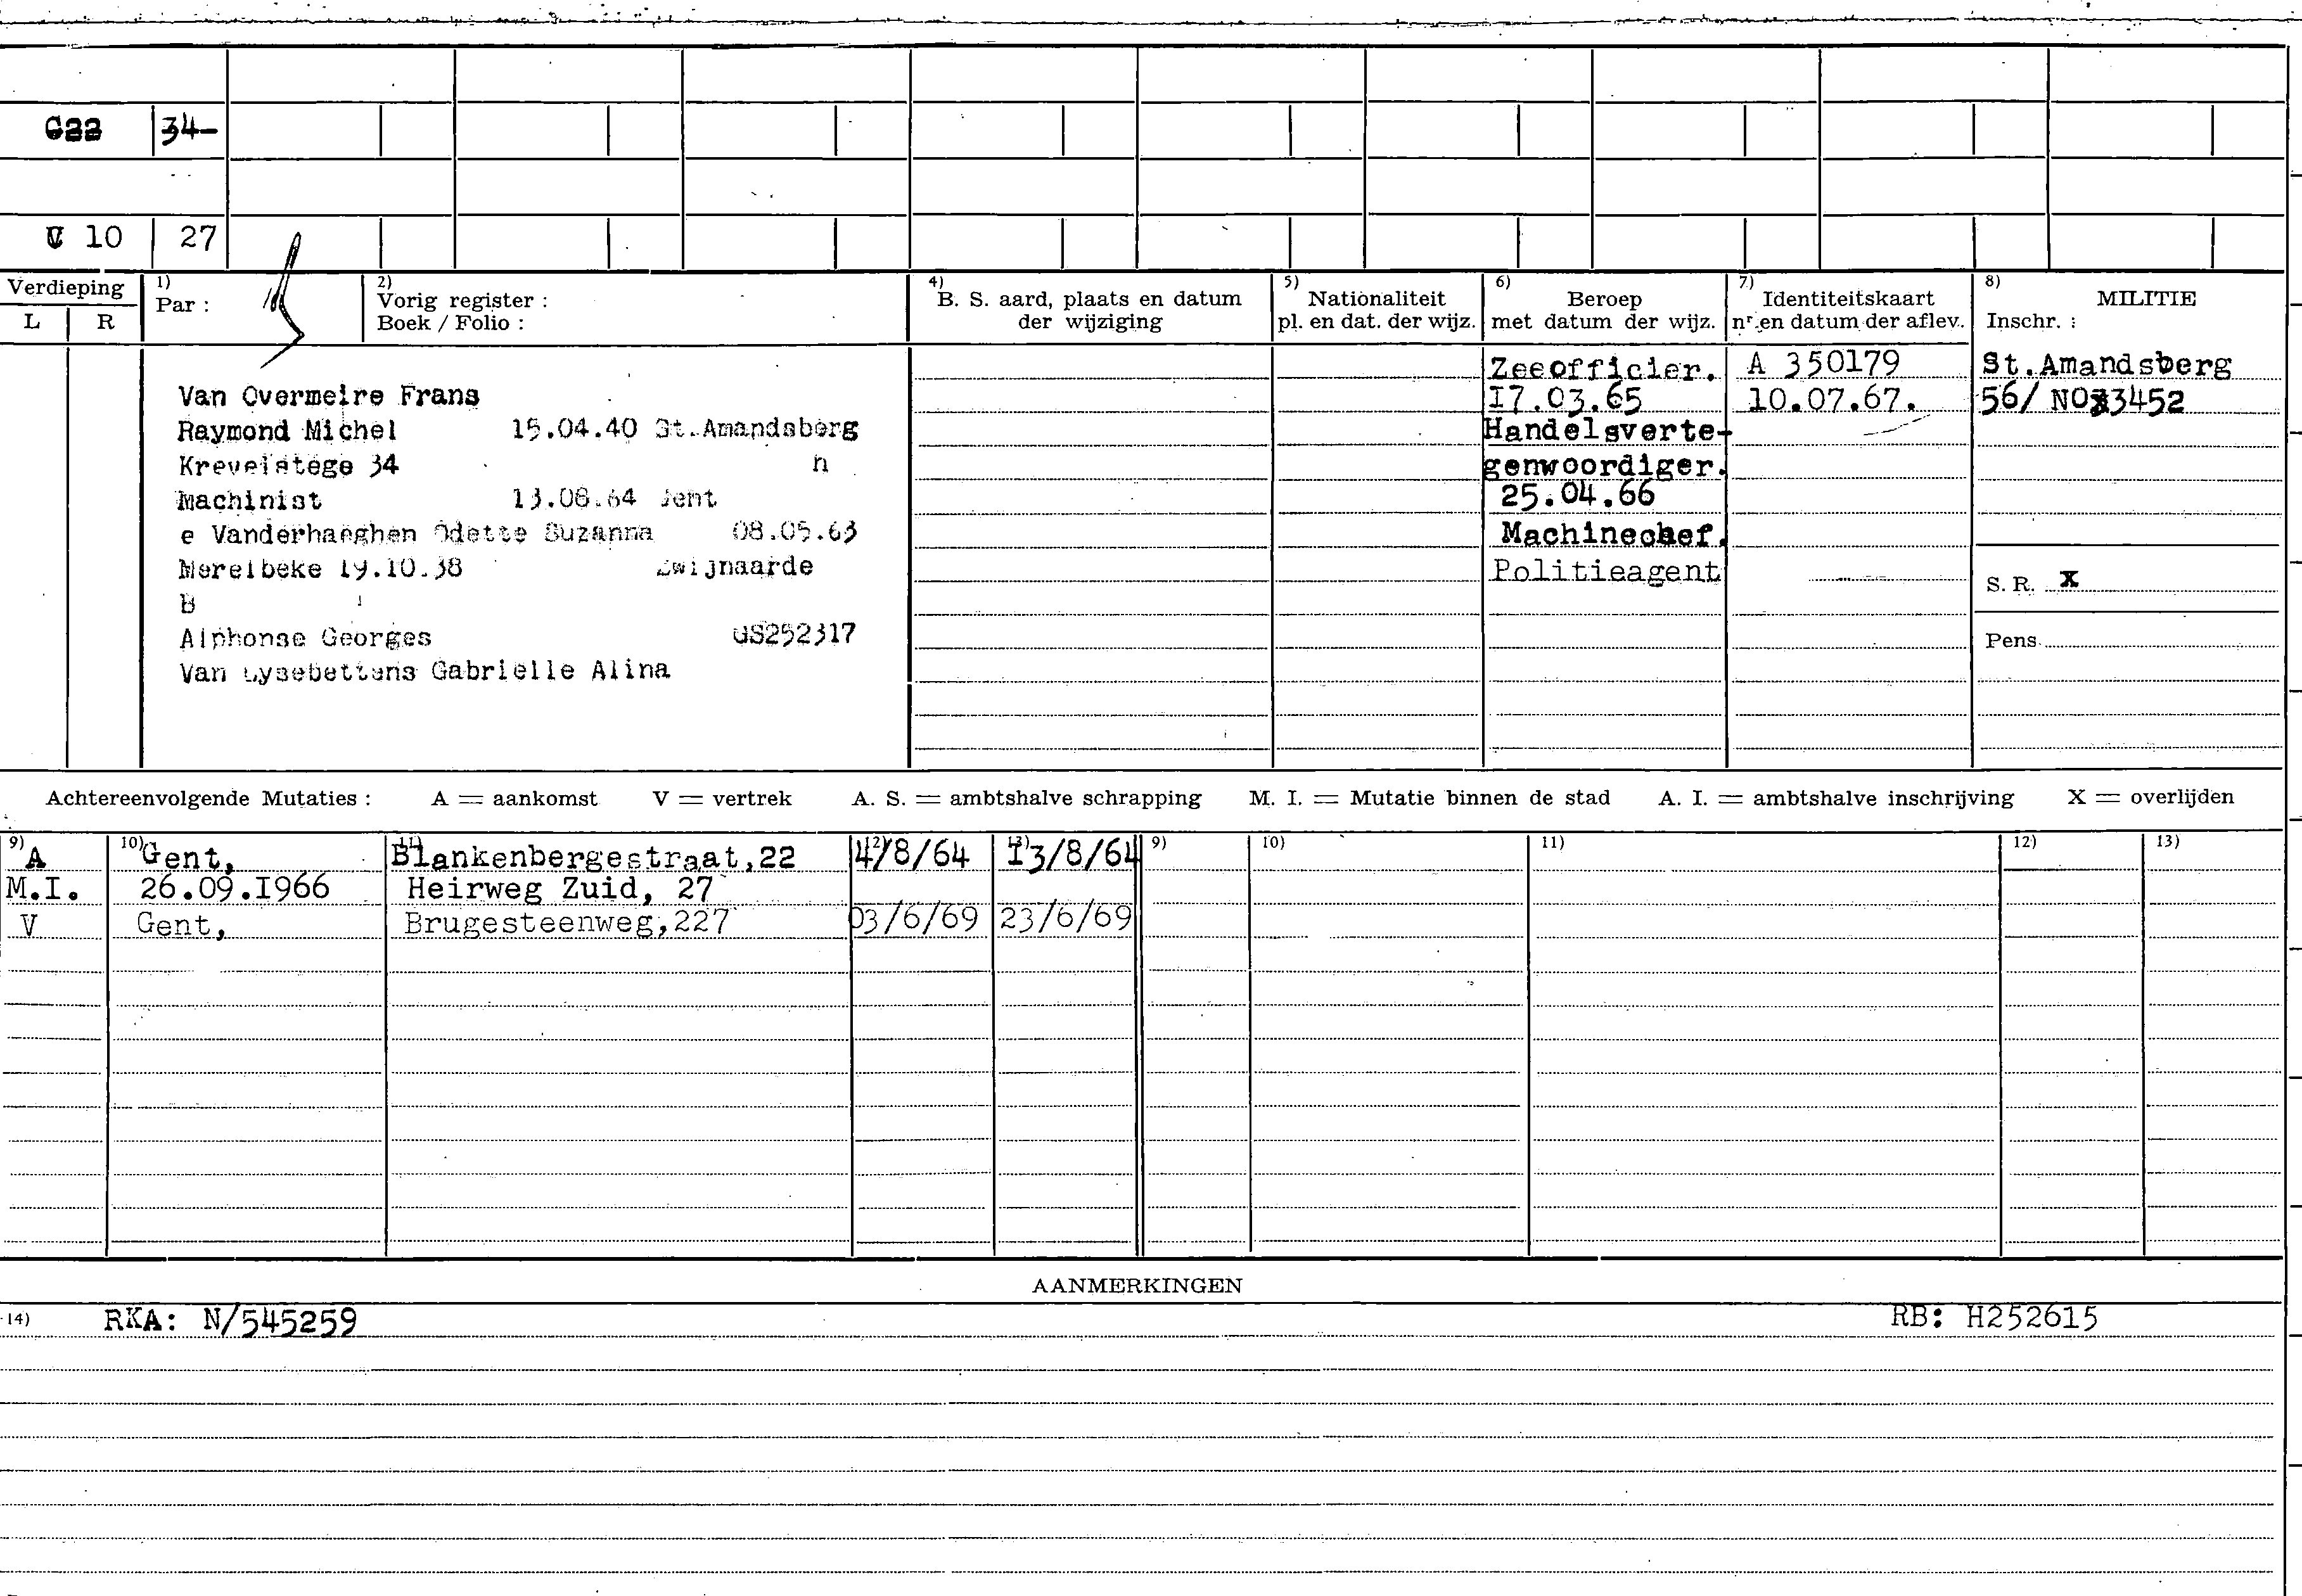 G22 34-
10 27
Verdieping
L R
1) Par :
2) Vorig register :
Boek / Folio :
4) B. S. aard, plaats en datum
der wijziging
5) Nationaliteit
pl. en dat. der wijz.
6) Beroep
met datum der wijz.
7) Identiteitskaart
nr. en datum der aflev.
8) MILITIE
Inschr. :
Van Overmeire Frans
Raymond Michel 15.04.40 St.Amandsberg
Krevelstege 34 h
Machinist 13.08.64 Gent
e Vanderhaeghen Odette Suzanna 08.05.63
Merelbeke 19.10.38 Zwijnaarde
B
Alphonse Georges GS252317
Van Lysebettens Gabrielle Alina
Zeeofficier.
I7.03.65
Handelsverte-
genwoordiger.
25.04.66
Machinechef.
Politieagent
A 350179
10.07.67.
St.Amandsberg
56/ 3452
S. R. X
Pens
Achtereenvolgende Mutaties : A = aankomst V = vertrek A. S. = ambtshalve schrapping M. I. = Mutatie binnen de stad A. I. = ambtshalve inschrijving X = overlijden
9) 10) 11) 12) 13) 9) 10) 11) 12) 13)
A Gent, Blankenbergestraat,22 4/8/64 I3/8/64
M.I. 26.09.I966 Heirweg Zuid, 27
V Gent, Brugesteenweg,227 03/6/69 23/6/69
AANMERKINGEN
14) RKA: N/545259 RB: H252615